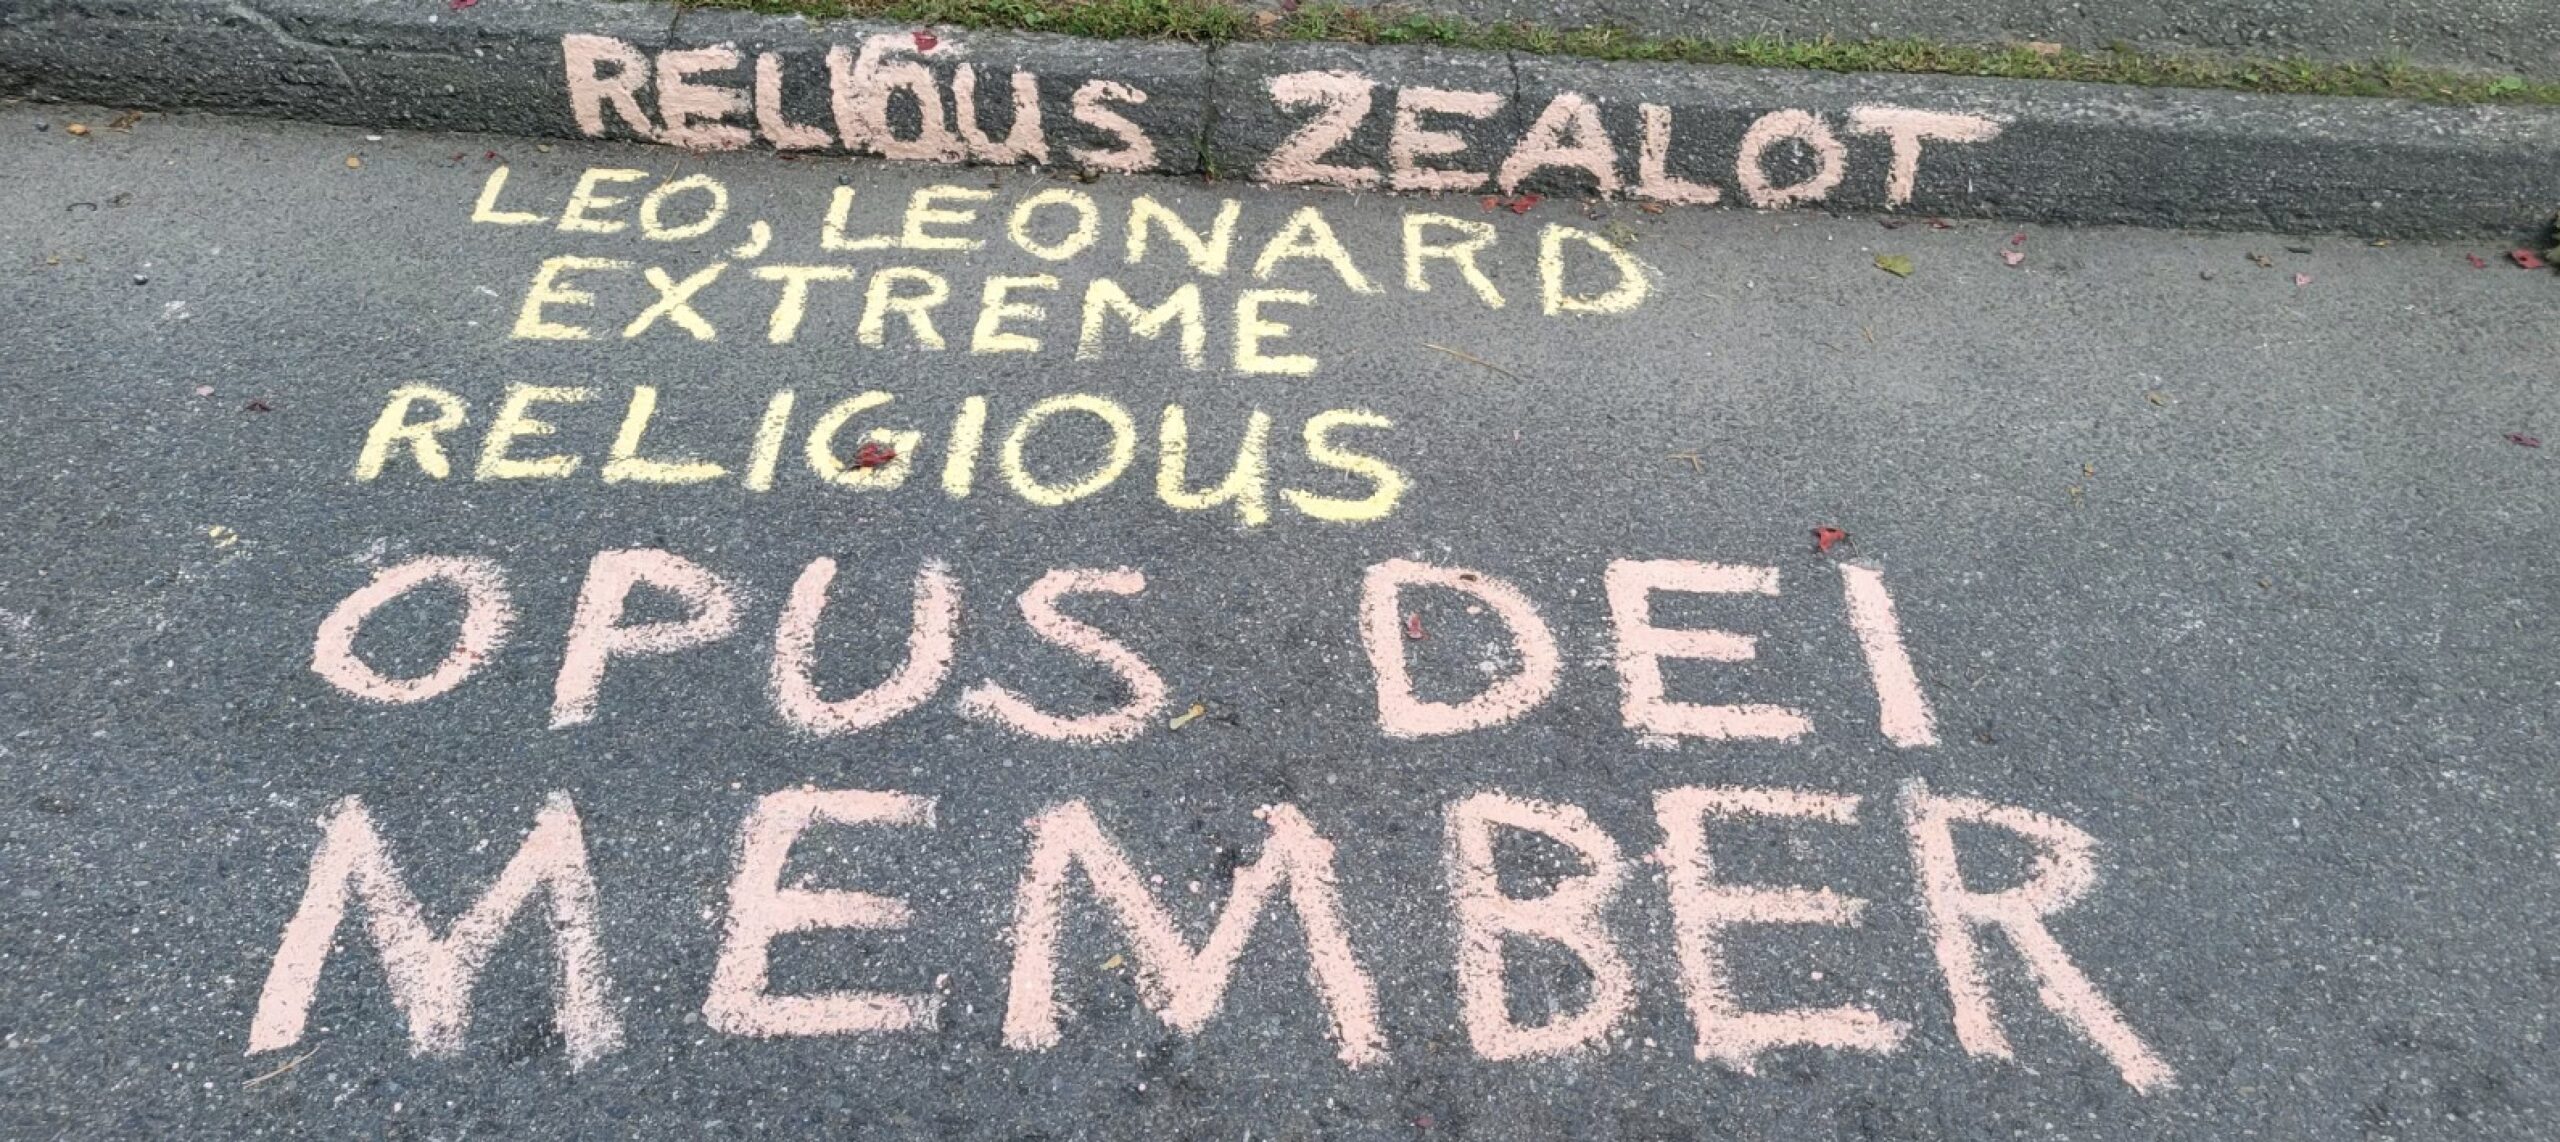 RELIGOUS ZEALOT
LEO, LEONARD
EXTREME
RELIGIOUS
OPUS DEI
MEMBER